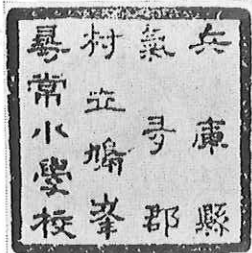 兵庫縣
氣多郡
村立鳩峯
尋常小學校